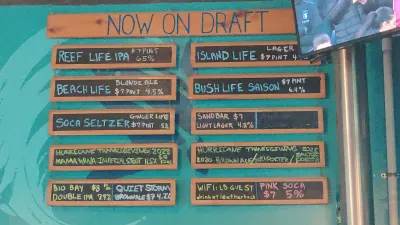 NOW ON DRAFT
REEF LIFE IPA $7 PINT 6.5%
ISLAND LIFE LAGER $7 PINT
BEACH LIFE BLONDE ALE $7 PINT 4.5%
BUSH LIFE SAISON $7 PINT 6.4%
SOCA SELTZER GINGER LIME $7 PINT
SANDBAR $7
LIGHT LAGER 4.2%
HURRICANE THANKSGIVING 2023
MAMAWANA IMPERIAL STOUT 11.5%
HURRICANE THANKSGIVING
2020 BROWN ALE
BIO BAY
DOUBLE IPA
QUIET STORM
BROWN ALE $7 4.2%
WIFI: LB GUEST
drinkatleatherback
PINK SOCA
$7 5%